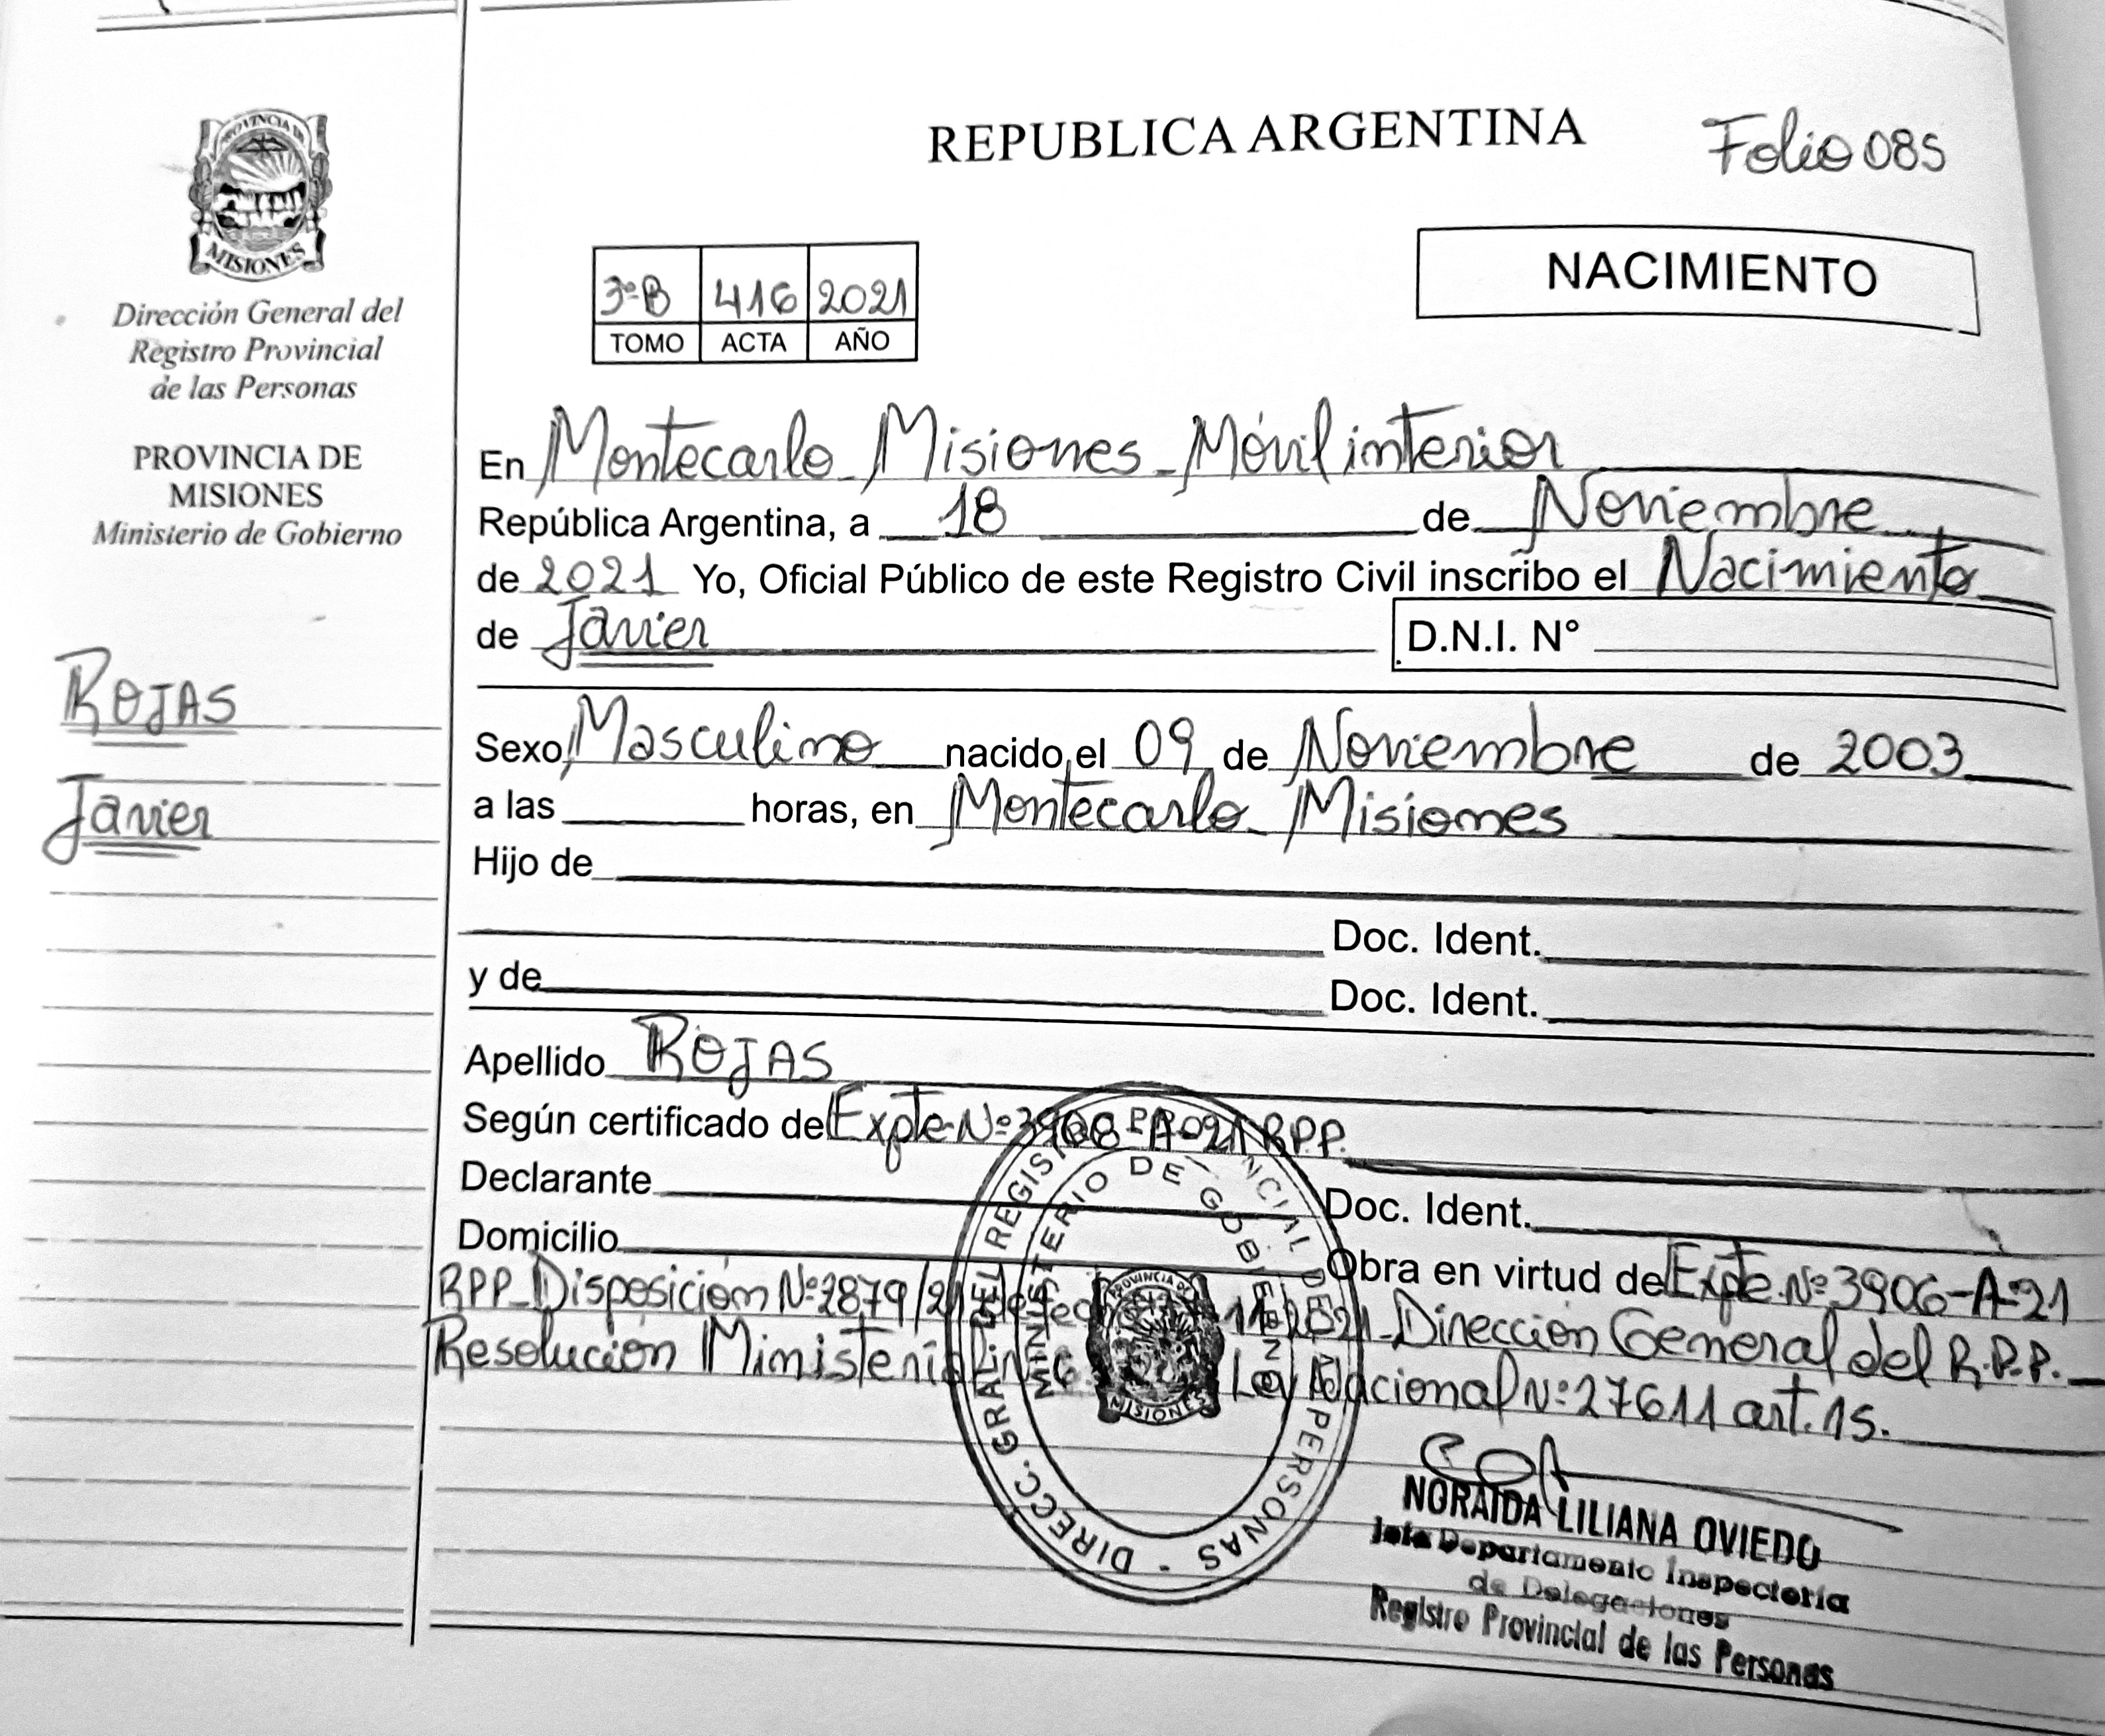 REPUBLICA ARGENTINA
Folio 085
PROVINCIA DE
MISIONES
Dirección General del
Registro Provincial
de las Personas
PROVINCIA DE
MISIONES
Ministerio de Gobierno
ROJAS
Javier
3º B 416 2021
TOMO ACTA AÑO
NACIMIENTO
En Montecarlo - Misiones - Móvil interior
República Argentina, a 18 de Noviembre
de 2021 Yo, Oficial Público de este Registro Civil inscribo el Nacimiento
de Javier D.N.I. N°
Sexo Masculino nacido el 09 de Noviembre de 2003
a las horas, en Montecarlo - Misiones
Hijo de
Doc. Ident.
y de Doc. Ident.
Apellido ROJAS
Según certificado de Expte. Nº A-21 R.P.P.
Declarante Doc. Ident.
Domicilio Obra en virtud de Expte. Nº 3906-A-21
RPP - Disposición Nº 2879/21 - Dirección General del R.P.P.
Resolución Ministerial Ley Nacional Nº 27611 art. 15.
DIRECC. GRAL. DEL REGISTRO PROVINCIAL DE LAS PERSONAS -
MINISTERIO DE GOBIERNO
PROVINCIA DE
MISIONES
NORAIDA LILIANA OVIEDO
Jefa Departamento Inspectoría
de Delegaciones
Registro Provincial de las Personas